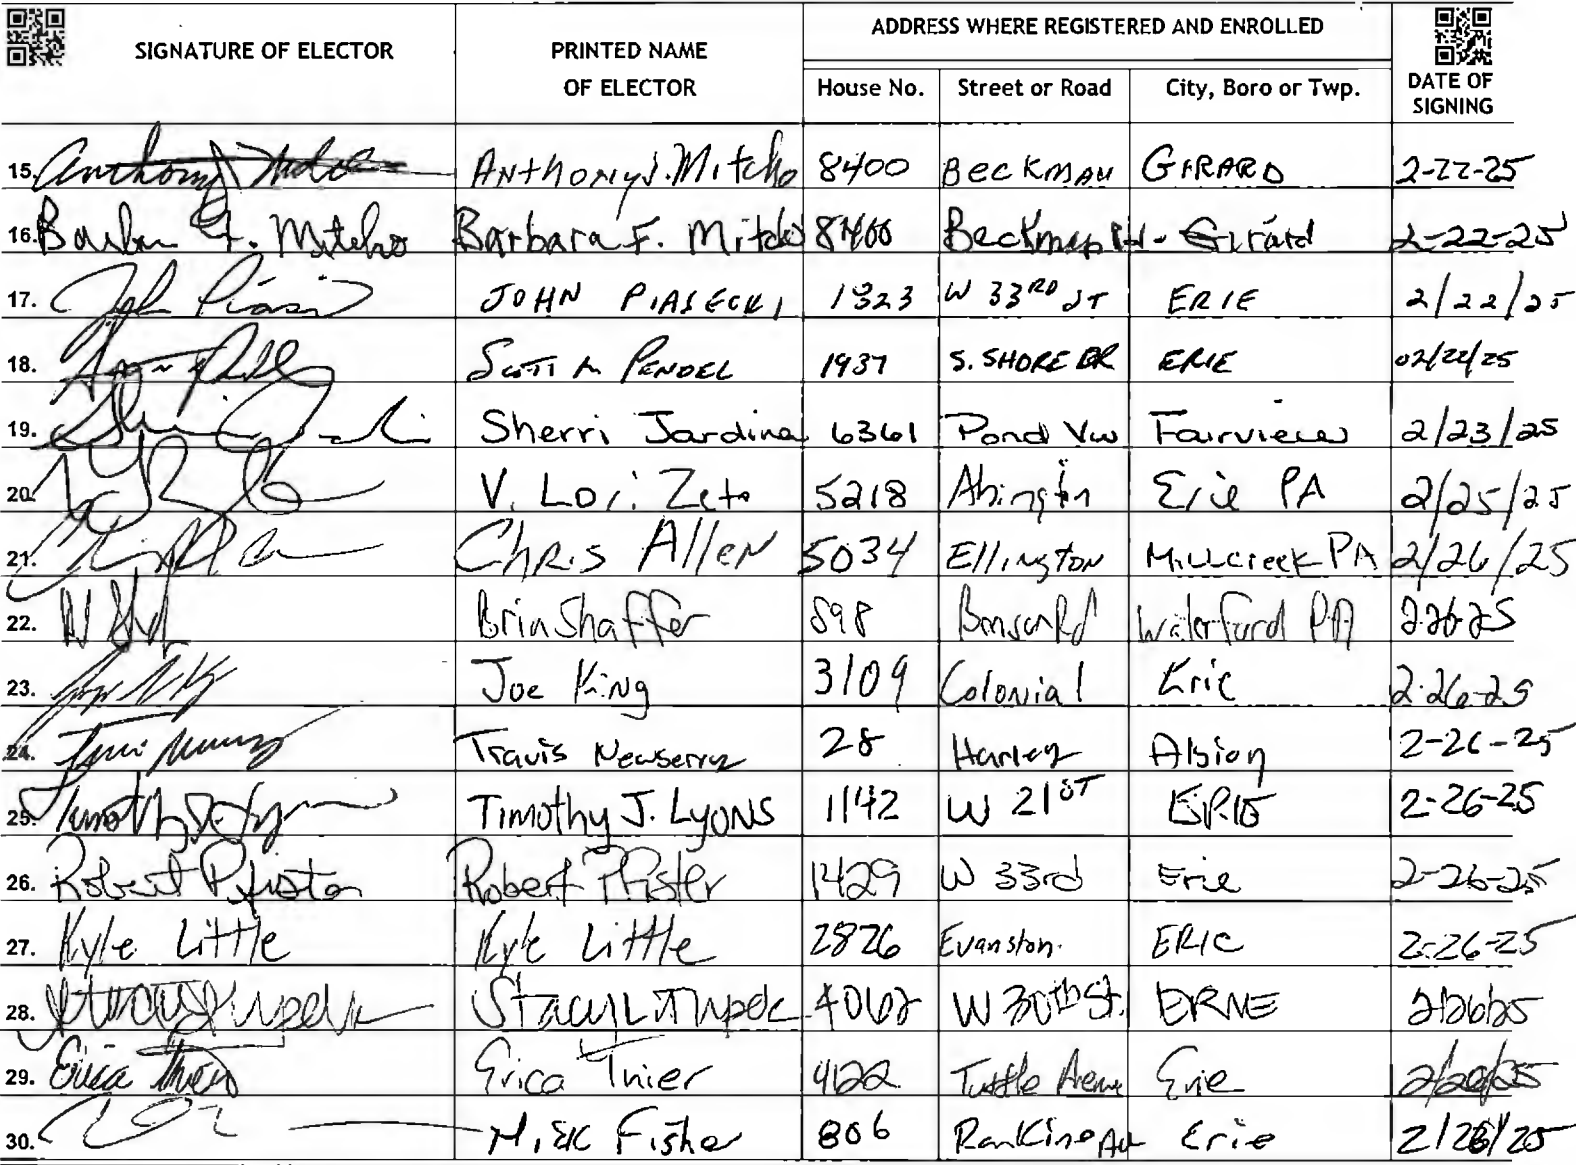 SIGNATURE OF ELECTOR PRINTED NAME OF ELECTOR ADDRESS WHERE REGISTERED AND ENROLLED DATE OF SIGNING
House No. Street or Road City, Boro or Twp.
15. Anthony J. Mitcho 8400 Beckman GIRARD 2-22-25
16. Barbara F. Mitcho Barbara F. Mitcho 8400 Beckman Rd. Girard 2-22-25
17. JOHN PIASECKI 1323 W 33RD ST ERIE 2/22/25
18. SCOTT A PENDEL 1937 S. SHORE DR ERIE 02/22/25
19. Sherri Jardina 6361 Pond Vw Fairview 2/23/25
20. V. Lori Zeto 5218 Abington Erie PA 2/25/25
21. Chris Allen 5034 Ellington Millcreek PA 2/26/25
22. Brin Shaffer 898 Waterford PA 2-26-25
23. Joe King 3109 Colonial Erie 2-26-25
24. Travis Newserry 28 Harley Albion 2-26-25
25. Timothy J. Lyons Timothy J. Lyons 1142 W 21ST ERIE 2-26-25
26. Robert Pfister Robert Pfister 1429 W 33rd Erie 2-26-25
27. Kyle Little Kyle Little 2826 Evanston ERIE 2-26-25
28. W 30th St. 2/26/25
29. Erica Thier Erica Thier 4122 Tuttle Avenue Erie 2/26/25
30. Fisher 806 Rankine Av Erie 2/26/25